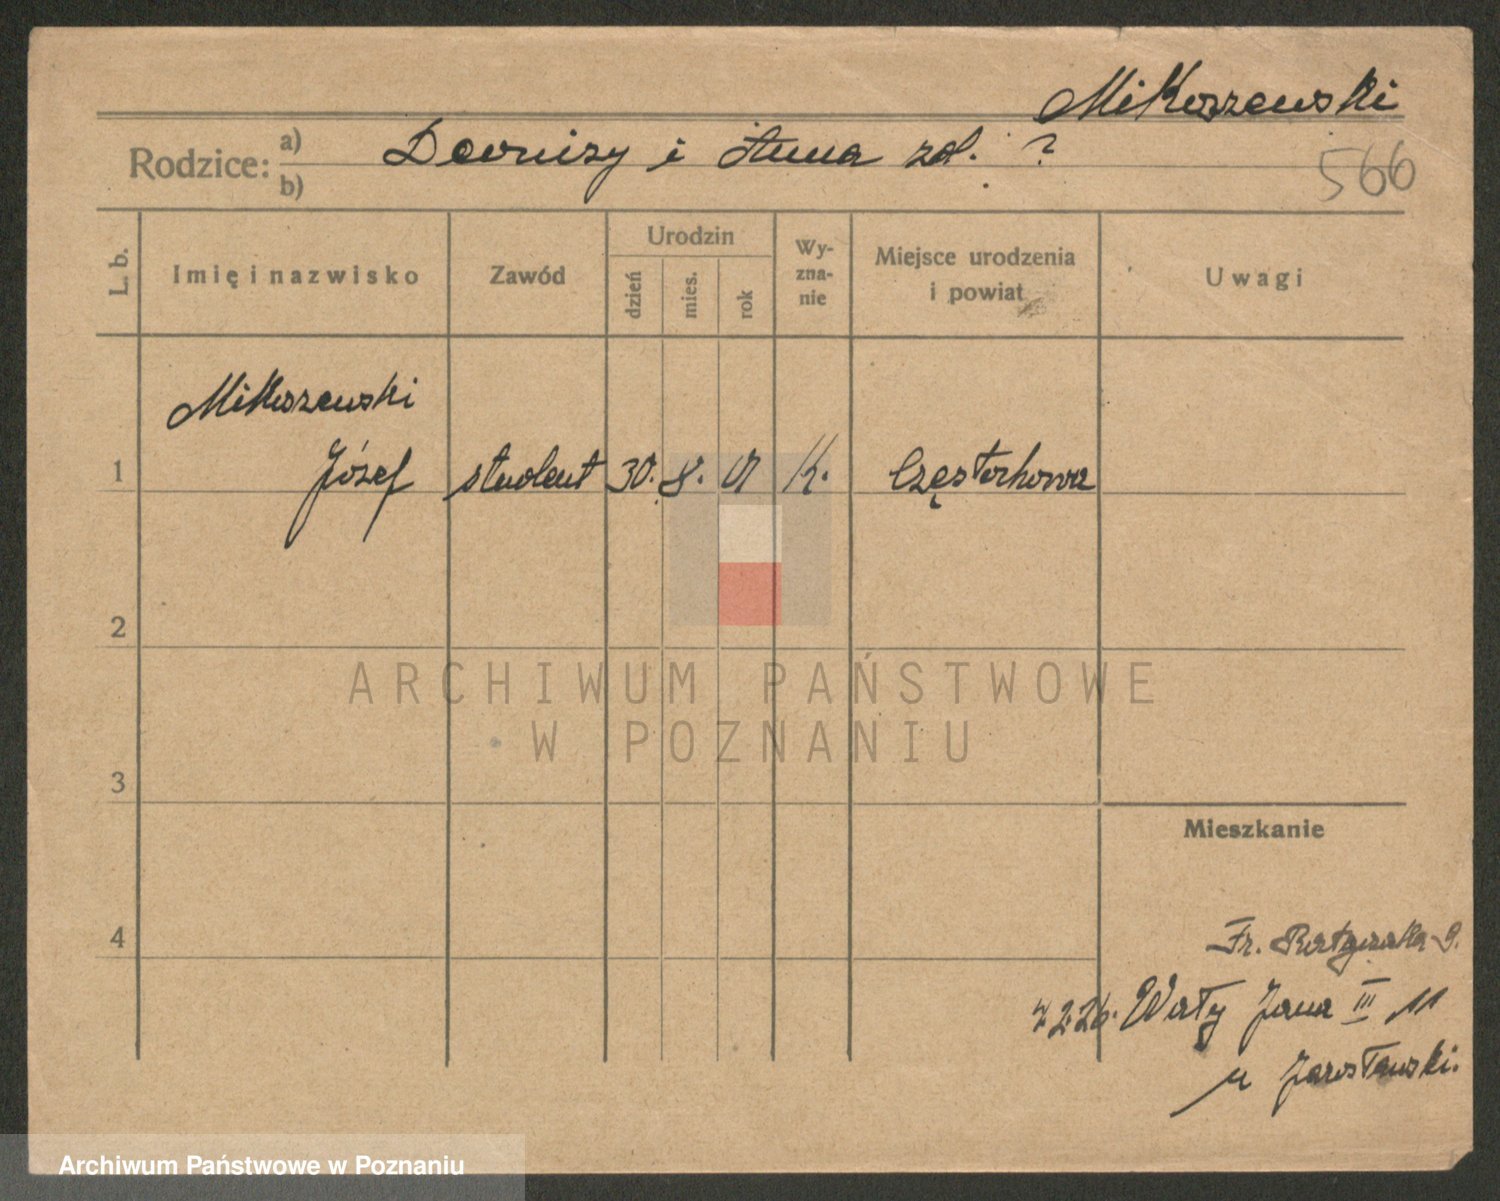 Mikoszewski
Rodzice: a) Dionizy i Anna zd. ?
b)
566
L. b.
Imię i nazwisko
Zawód
Urodzin
dzień
mies.
rok
Wy-
zna-
nie
Miejsce urodzenia
i powiat
Uwagi
Mikoszewski
1 Józef student 30. 8. 01 K. Częstochowa
2
3
4
Mieszkanie
Fr. Ratajczaka 9.
Wały Jana III 11
u Jarosławski.
ARCHIWUM PAŃSTWOWE
W POZNANIU
Archiwum Państwowe w Poznaniu